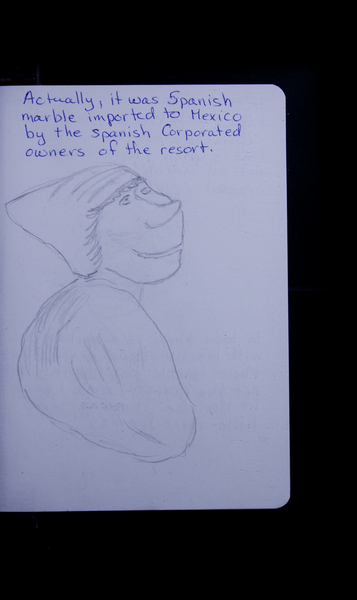 Actually, it was Spanish
marble imported to Mexico
by the Spanish Corporated
owners of the resort.